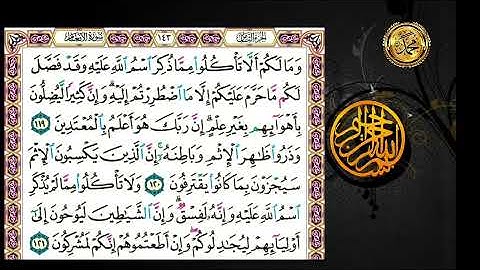 سورة الأنعام ١٤٣ الجزء الثامن
وَمَا لَكُمْ أَلَّا تَأْكُلُوا۟ مِمَّا ذُكِرَ ٱسْمُ ٱللَّهِ عَلَيْهِ وَقَدْ فَصَّلَ
لَكُم مَّا حَرَّمَ عَلَيْكُمْ إِلَّا مَا ٱضْطُرِرْتُمْ إِلَيْهِ وَإِنَّ كَثِيرًا لَّيُضِلُّونَ
بِأَهْوَآئِهِم بِغَيْرِ عِلْمٍ إِنَّ رَبَّكَ هُوَ أَعْلَمُ بِٱلْمُعْتَدِينَ ١١٩
وَذَرُوا۟ ظَـٰهِرَ ٱلْإِثْمِ وَبَاطِنَهُۥٓ إِنَّ ٱلَّذِينَ يَكْسِبُونَ ٱلْإِثْمَ
سَيُجْزَوْنَ بِمَا كَانُوا۟ يَقْتَرِفُونَ ١٢٠ وَلَا تَأْكُلُوا۟ مِمَّا لَمْ يُذْكَرِ
ٱسْمُ ٱللَّهِ عَلَيْهِ وَإِنَّهُۥ لَفِسْقٌ وَإِنَّ ٱلشَّيَـٰطِينَ لَيُوحُونَ إِلَىٰٓ
أَوْلِيَآئِهِمْ لِيُجَـٰدِلُوكُمْ وَإِنْ أَطَعْتُمُوهُمْ إِنَّكُمْ لَمُشْرِكُونَ ١٢١
محمد
بسم الله الرحمن الرحيم